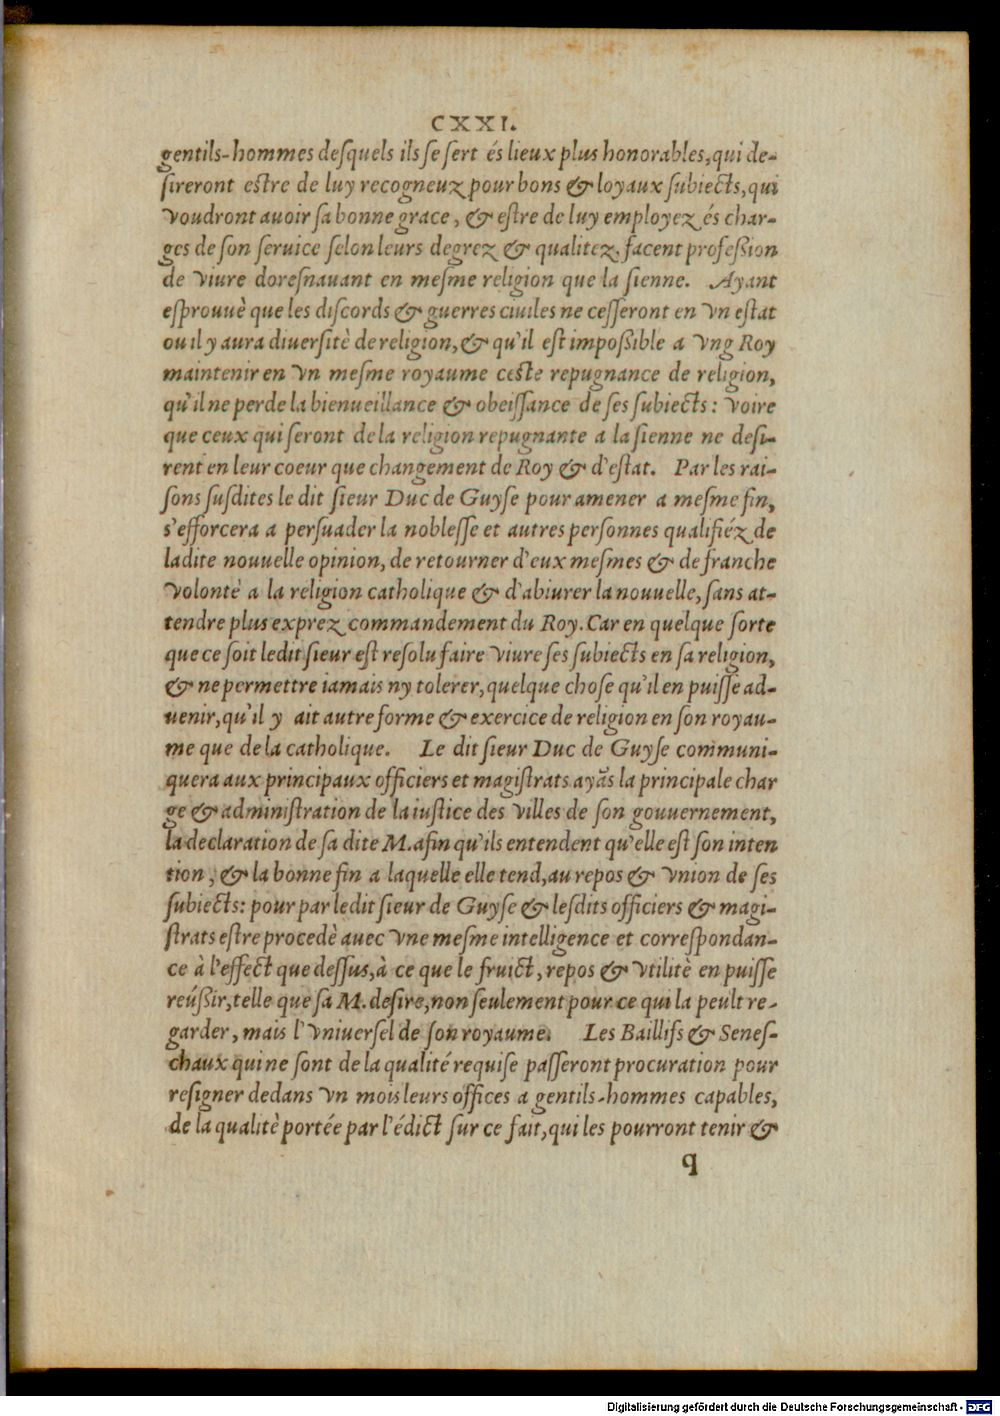 CXXI.
gentils-hommes desquels ils se sert és lieux plus honorables, qui de-
sireront estre de luy recogneuz pour bons & loyaux subiects, qui
voudront auoir sa bonne grace, & estre de luy employez és char-
ges de son seruice selon leurs degrez & qualitez, facent profession
de viure doresnauant en mesme religion que la sienne. Ayant
esprouuè que les discords & guerres ciuiles ne cesseront en vn estat
ou il y aura diuersitè de religion, & qu'il est impossible a vng Roy
maintenir en vn mesme royaume ceste repugnance de religion,
qu'il ne perde la bienueillance & obeissance de ses subiects: voire
que ceux qui seront de la religion repugnante a la sienne ne desi-
rent en leur coeur que changement de Roy & d'estat. Par les rai-
sons susdites le dit sieur Duc de Guyse pour amener a mesme fin,
s'efforcera a persuader la noblesse et autres personnes qualifiéz de
ladite nouuelle opinion, de retourner d'eux mesmes & de franche
volontè a la religion catholique & d'abiurer la nouuelle, sans at-
tendre plus exprez commandement du Roy. Car en quelque sorte
que ce soit ledit sieur est resolu faire viure ses subiects en sa religion,
& ne permettre iamais ny tolerer, quelque chose qu'il en puisse ad-
uenir, qu'il y ait autre forme & exercice de religion en son royau-
me que de la catholique. Le dit sieur Duc de Guyse communi-
quera aux principaux officiers et magistrats ayãs la principale char
ge & administration de la iustice des villes de son gouuernement,
la declaration de sa dite M. afin qu'ils entendent qu'elle est son inten
tion, & la bonne fin a laquelle elle tend, au repos & vnion de ses
subiects: pour par le dit sieur de Guyse & lesdits officiers & magi-
strats estre procedè auec vne mesme intelligence et correspondan-
ce à l'effect que dessus, à ce que le fruict, repos & vtilitè en puisse
reüssir, telle que sa M. desire, non seulement pour ce qui la peult re-
garder, mais l'vniuersel de son royaume. Les Baillifs & Senes-
chaux qui ne sont de la qualité requise passeront procuration pour
resigner dedans vn mois leurs offices a gentils-hommes capables,
de la qualitè portée par l'édict sur ce fait, qui les pourront tenir &
q
Digitalisierung gefördert durch die Deutsche Forschungsgemeinschaft - DFG